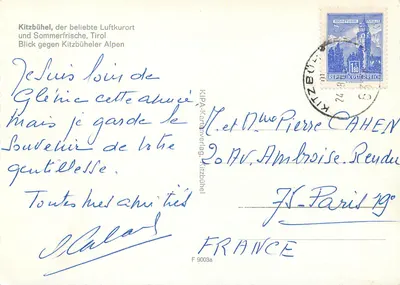 Kitzbühel, der beliebte Luftkurort
und Sommerfrische, Tirol
Blick gegen Kitzbüheler Alpen
Je suis loin de
cette année
mais je garde le
souvenir de votre
gentillesse.
Toutes mes amitiés
KIPA-Kartenverlag, Kitzbühel
REPUBLIK ÖSTERREICH
KITZBÜHEL
M. et Dme Pierre CAHEN
20 Av. Ambroise-Rendu
75-Paris 19e
FRANCE
F 9009a